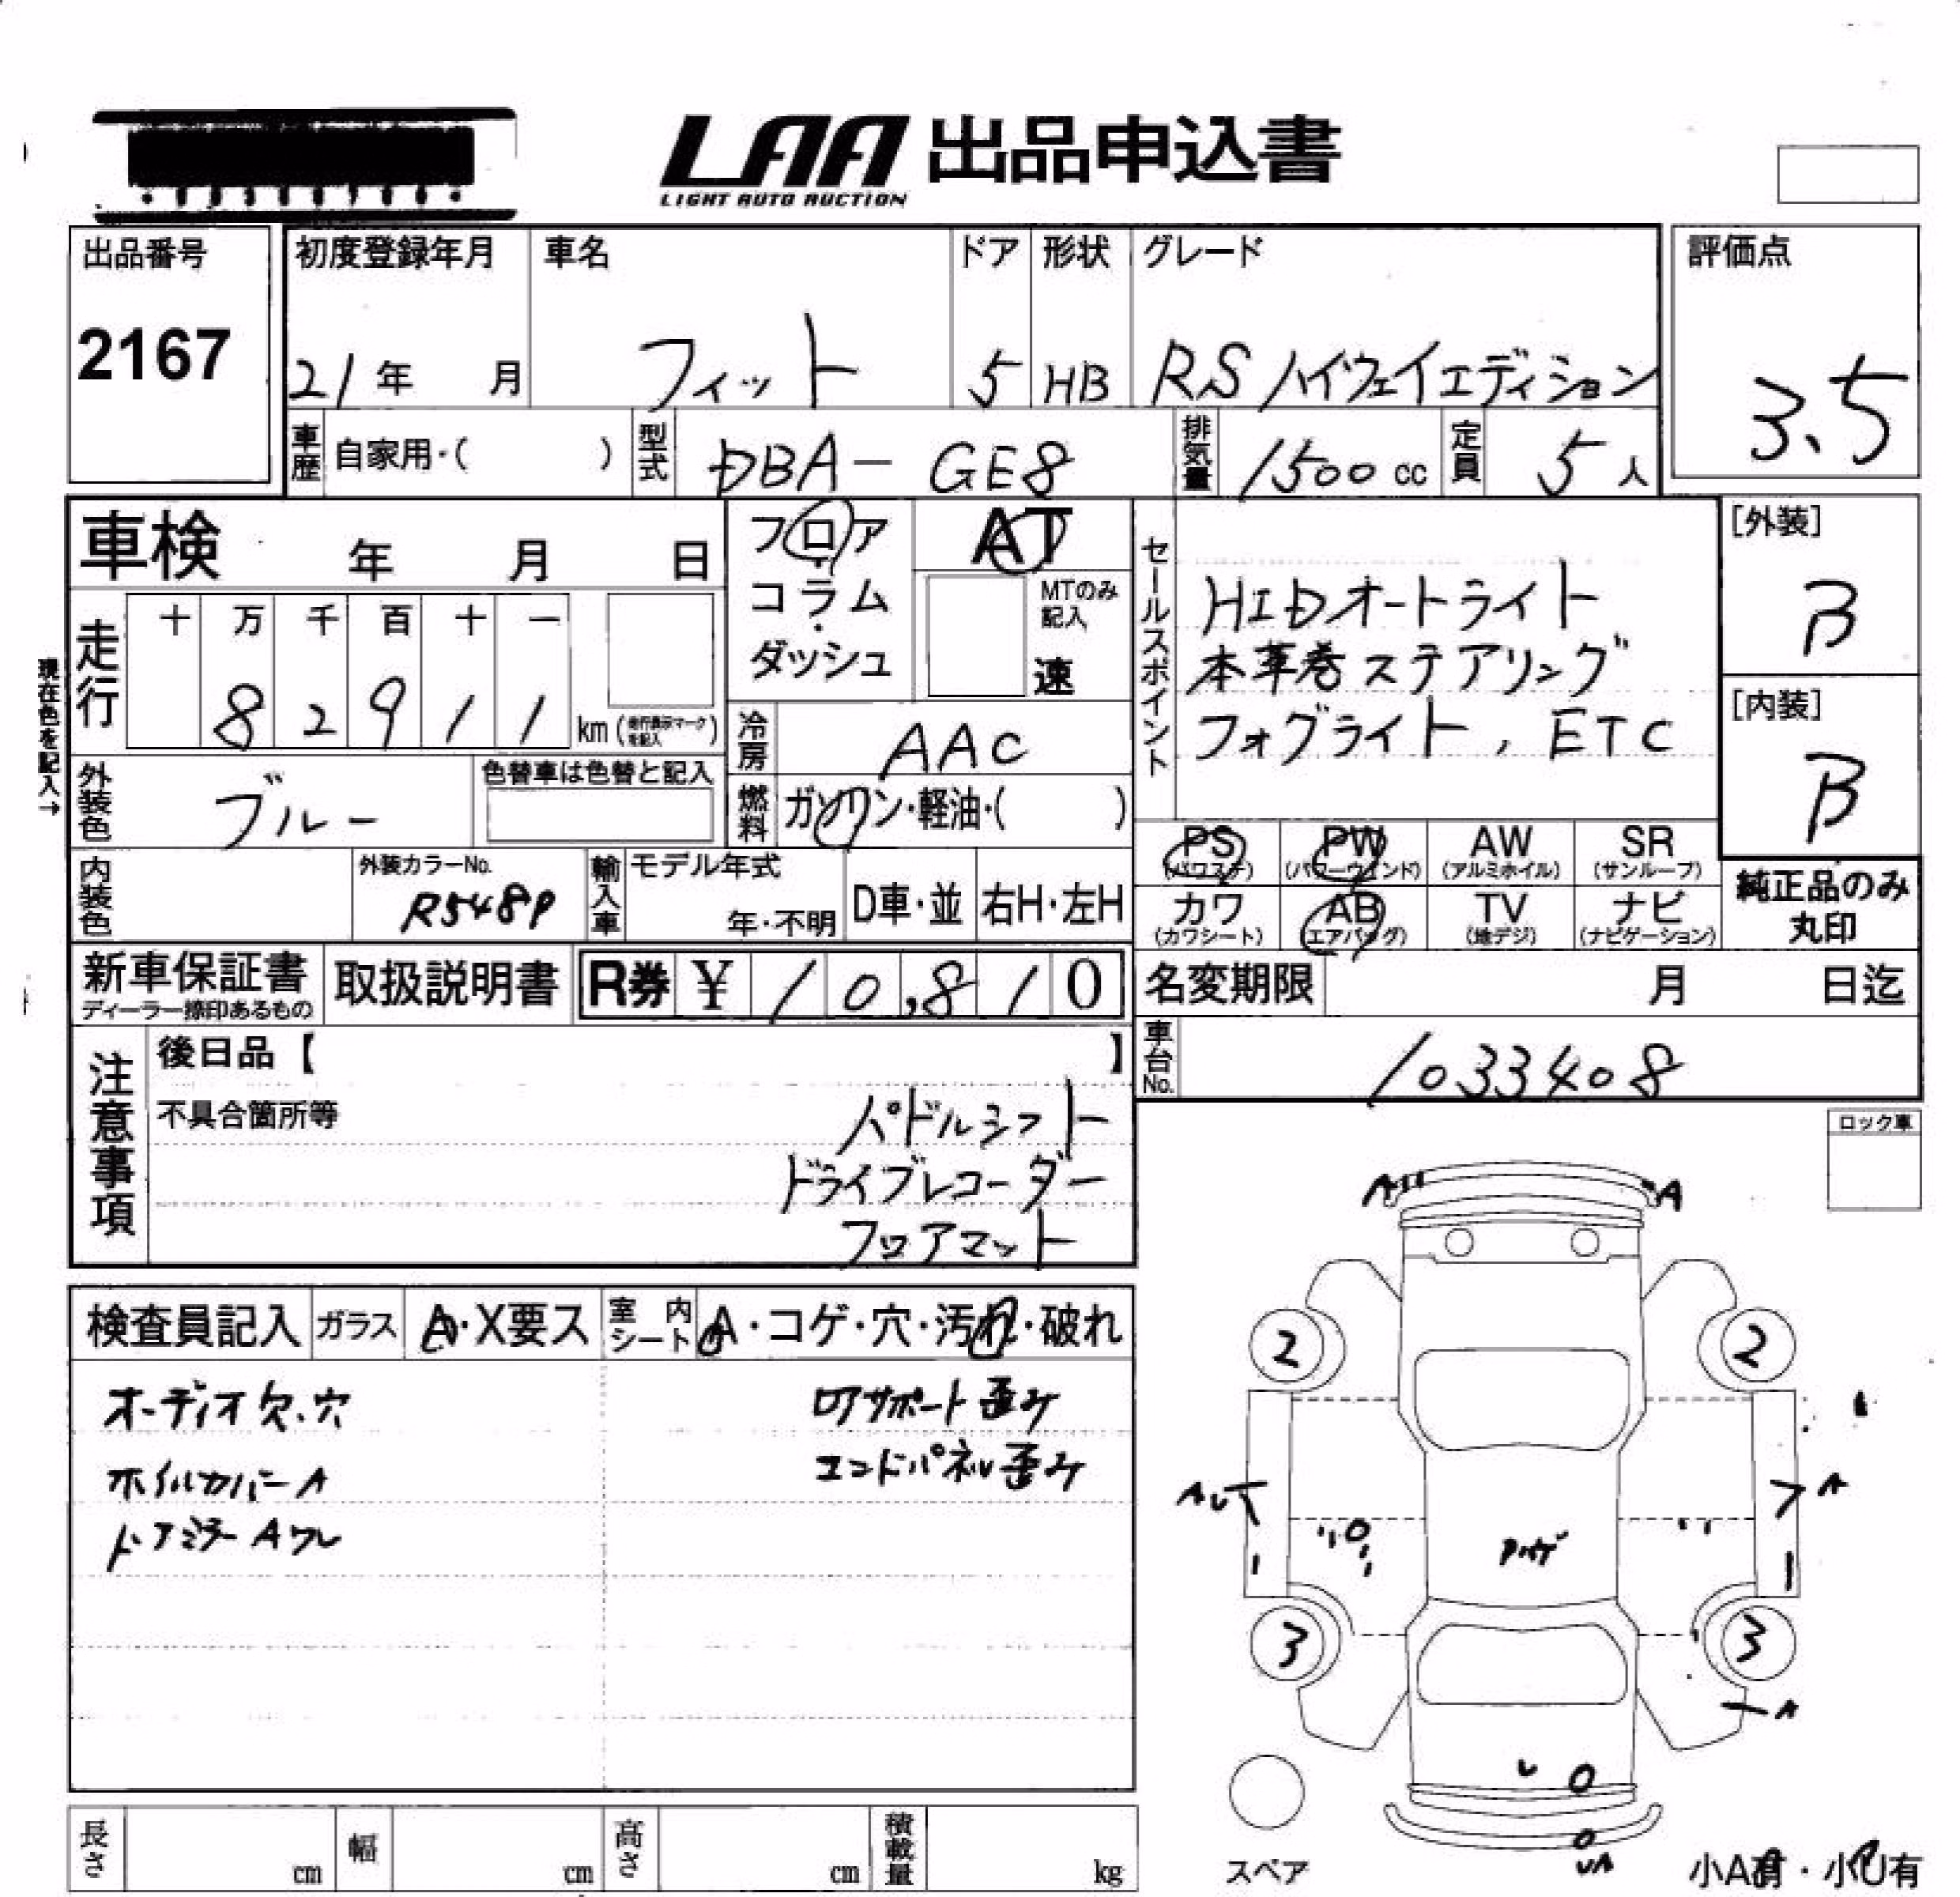 LAA 出品申込書
LIGHT AUTO AUCTION
出品番号
2167
初度登録年月
21年 月
車名
フィット
ドア
5
形状
HB
グレード
RS ハイウェイエディション
評価点
3.5
車歴 自家用・( )
型式 DBA-GE8
排気量 1500cc
定員 5人
車検 年 月 日
走行 十 万 千 百 十 一
8 2 9 1 1 km (走行表示マークを記入)
現在色を記入→
フロア・コラム・ダッシュ
AT
MTのみ記入
速
冷房 AAC
燃料 ガソリン・軽油・( )
セールスポイント
HIDオートライト
本革巻ステアリング
フォグライト, ETC
[外装]
B
[内装]
B
外装色 ブルー
色替車は色替と記入
内装色
外装カラーNo.
R548P
輸入車 モデル年式
年・不明
D車・並
右H・左H
PS (パワステ)
PW (パワーウインド)
AW (アルミホイル)
SR (サンルーフ)
カワ (カワシート)
AB (エアバッグ)
TV (地デジ)
ナビ (ナビゲーション)
純正品のみ丸印
新車保証書
ディーラー捺印あるもの
取扱説明書
R券 ¥10,810
名変期限 月 日迄
車台No. 1033408
注意事項
後日品【 】
不具合箇所等
パドルシフト
ドライブレコーダー
フロアマット
ロック車
検査員記入
ガラス A・X要ス
室内シート A・コゲ・穴・汚れ・破れ
オーディオ欠、穴
ホイルカバーA
ドアミラーAワレ
ロアサポート歪み
エンドパネル歪み
A A
2 2
A
A
3 3
A
スペア
小A有・小U有
長さ cm
幅 cm
高さ cm
積載量 kg